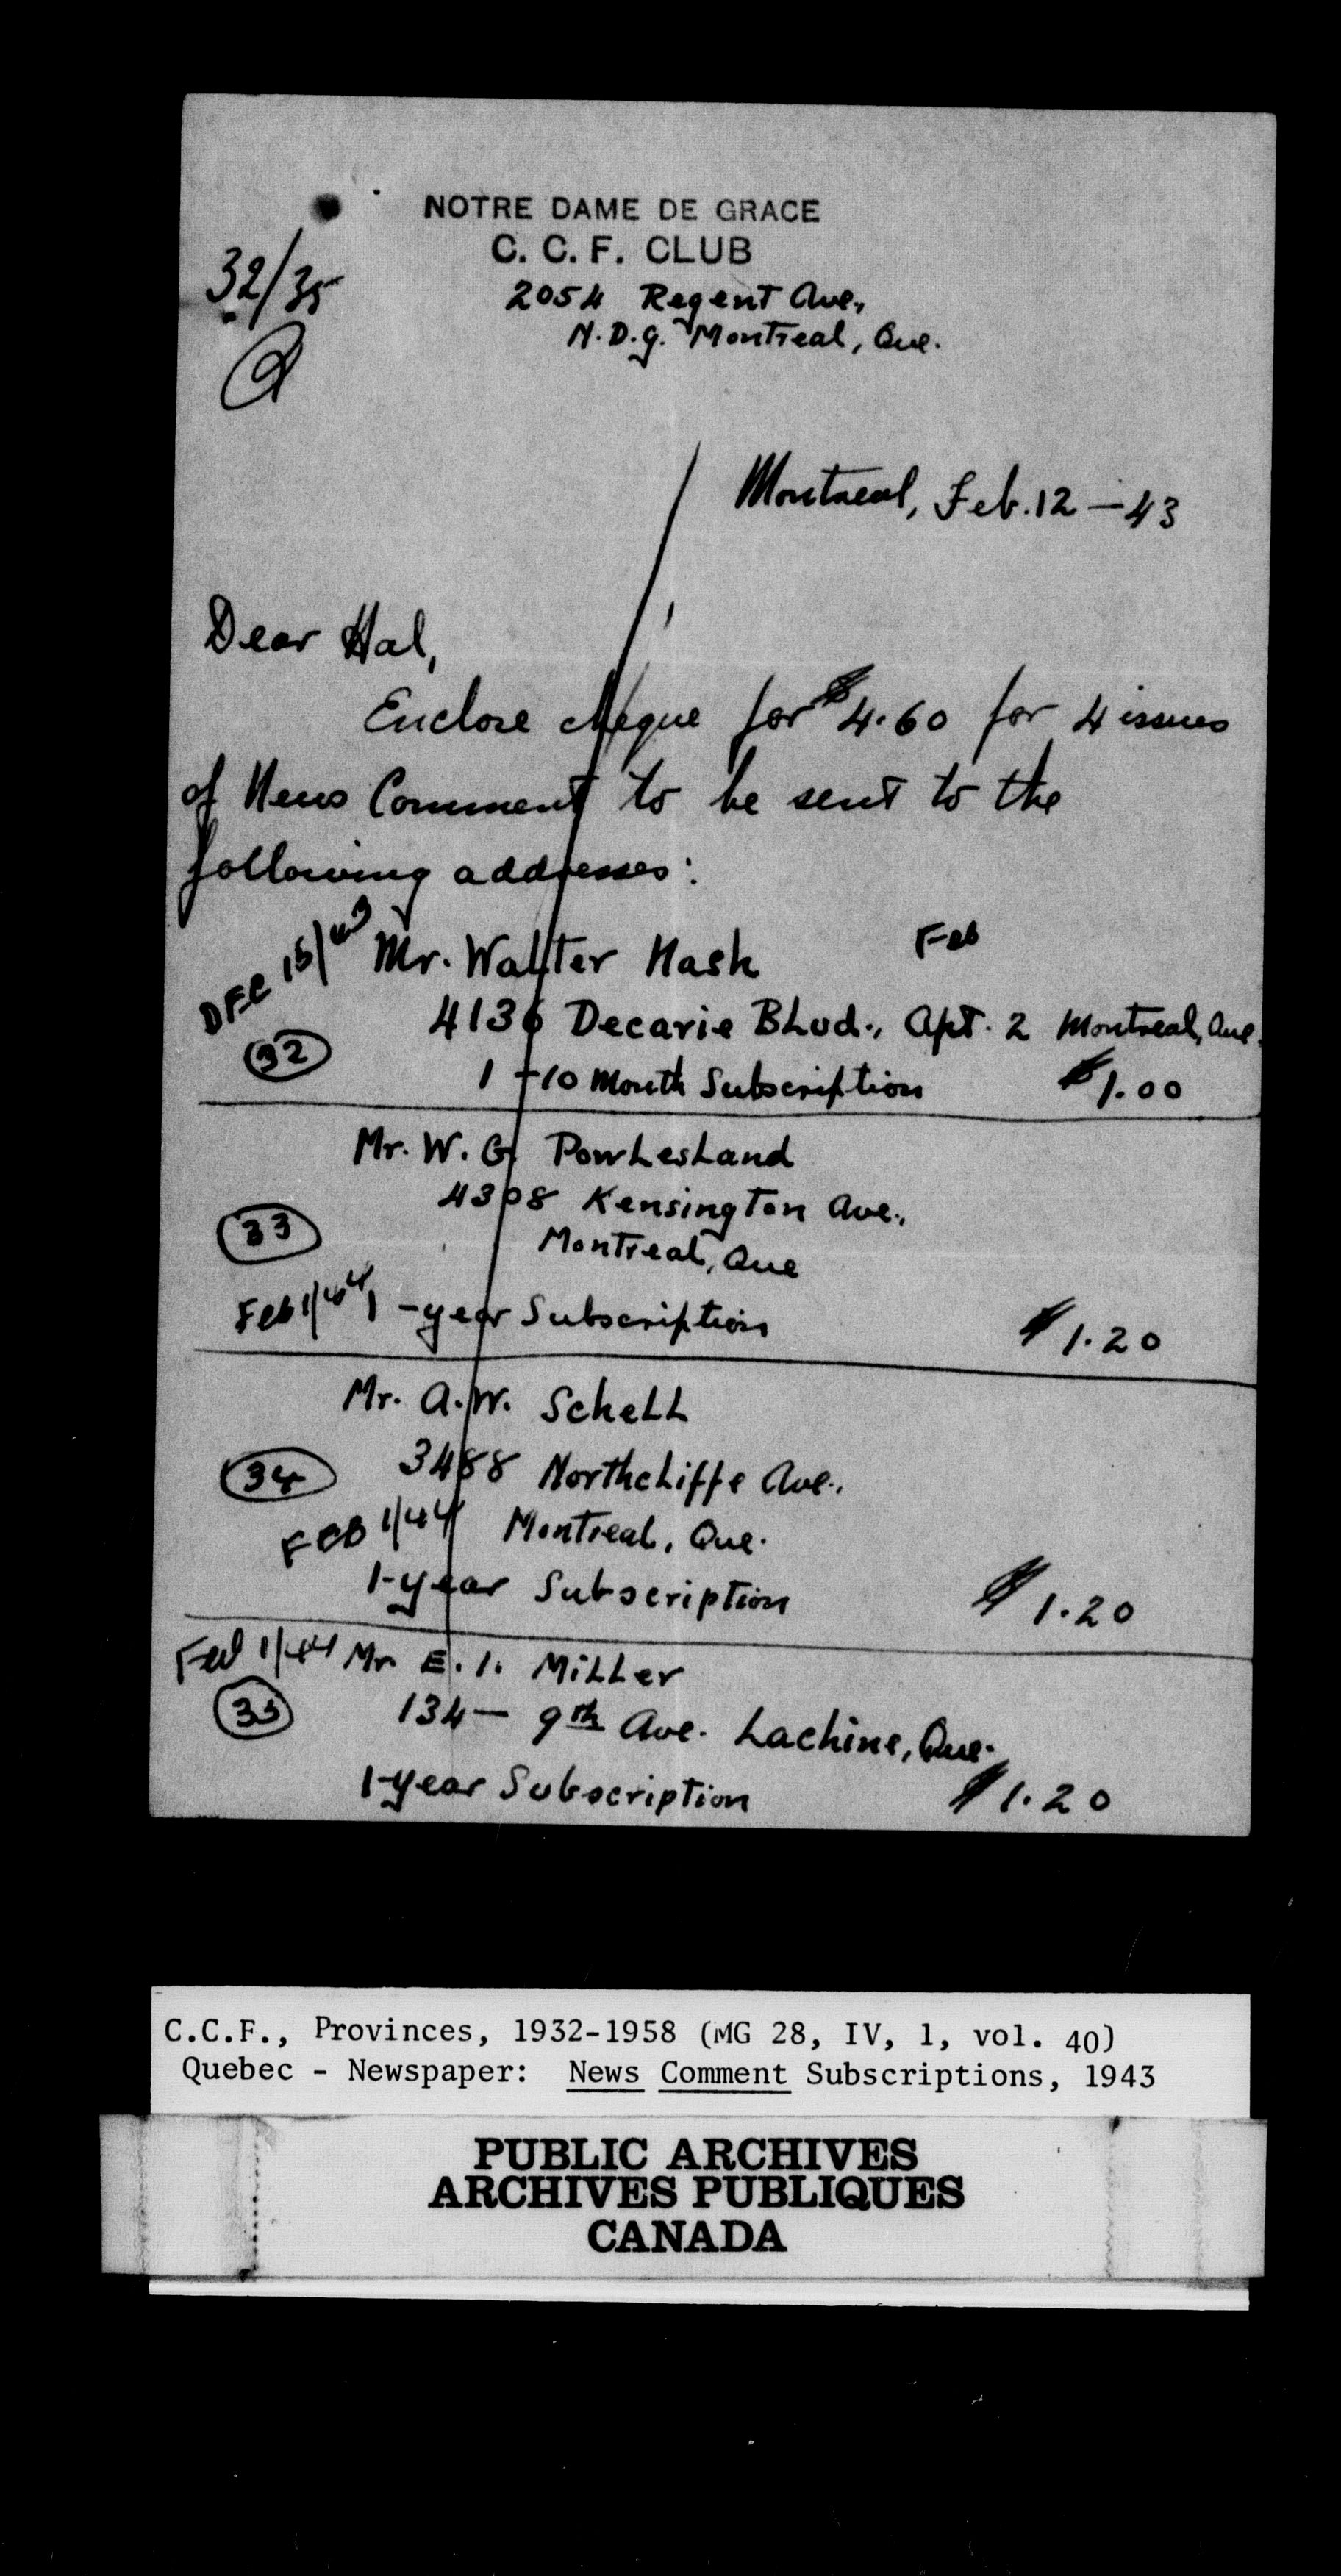 NOTRE DAME DE GRACE
C. C. F. CLUB
32/35
2054 Regent Ave.,
N.D.G. Montreal, Que.
Montreal, Feb. 12 - 43
Dear Hal,
Enclose cheque for $4.60 for 4 issues
of News Comment to be sent to the
following addresses:
DEC 15/43 Mr. Walter Nash Feb
4136 Decarie BLvd., Apt. 2 Montreal, Que.
32
1 - 10 Month Subscription $1.00
Mr. W. G. PowLesLand
4308 Kensington Ave.,
33
Montreal, Que
Feb 1/44 1 - year Subscription $1.20
Mr. A. W. ScheLL
34 3488 NorthcLiffe Ave.,
FEB 1/44 Montreal, Que.
1-year Subscription $1.20
Feb 1/44 Mr E. I. MiLLer
35 134 - 9th Ave. Lachine, Que.
1-year Subscription $1.20
C.C.F., Provinces, 1932-1958 (MG 28, IV, 1, vol. 40)
Quebec - Newspaper: News Comment Subscriptions, 1943
PUBLIC ARCHIVES
ARCHIVES PUBLIQUES
CANADA